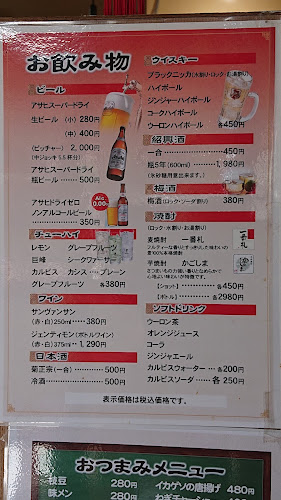 お飲み物
ビール
アサヒスーパードライ
生ビール (小) 280円
(中) 400円
(ピッチャー) 2,000円
(中ジョッキ5.5杯分)
アサヒスーパードライ
瓶ビール …… 500円
アサヒドライゼロ
ノンアルコールビール
…… 350円
Alc. 0.00%
チューハイ
レモン グレープフルーツ
巨峰 シークヮーサー
カルピス カシス プレーン
グレープフルーツ 各380円
ワイン
サンヴァンサン
(赤・白)250ml …… 380円
ジェンティモン(ボトルワイン)
(赤・白)375ml …… 1,290円
日本酒
菊正宗(一合) …… 500円
冷酒 …… 500円
ウイスキー
ブラックニッカ(水割り・ロック・お湯割り)
ハイボール
ジンジャーハイボール
コークハイボール
ウーロンハイボール 各450円
紹興酒
一合 …… 450円
瓶5年(600ml) …… 1,980円
(氷砂糖用意出来ます。)
梅酒
梅酒(ロック・ソーダ割り) 380円
焼酎
(ロック・水割り・お湯割り)
麦焼酎 一番札
一番札
芋焼酎 かごしま
【ショット】 …… 各450円
【ボトル】 …… 各2980円
ソフトドリンク
ウーロン茶
オレンジジュース
コーラ
ジンジャエール
カルピスウォーター …… 各200円
カルピスソーダ …… 各250円
表示価格は税込価格です。
おつまみメニュー
枝豆 280円
味メン 280円
イカゲソの唐揚げ 480円
ねぎチャーシュー